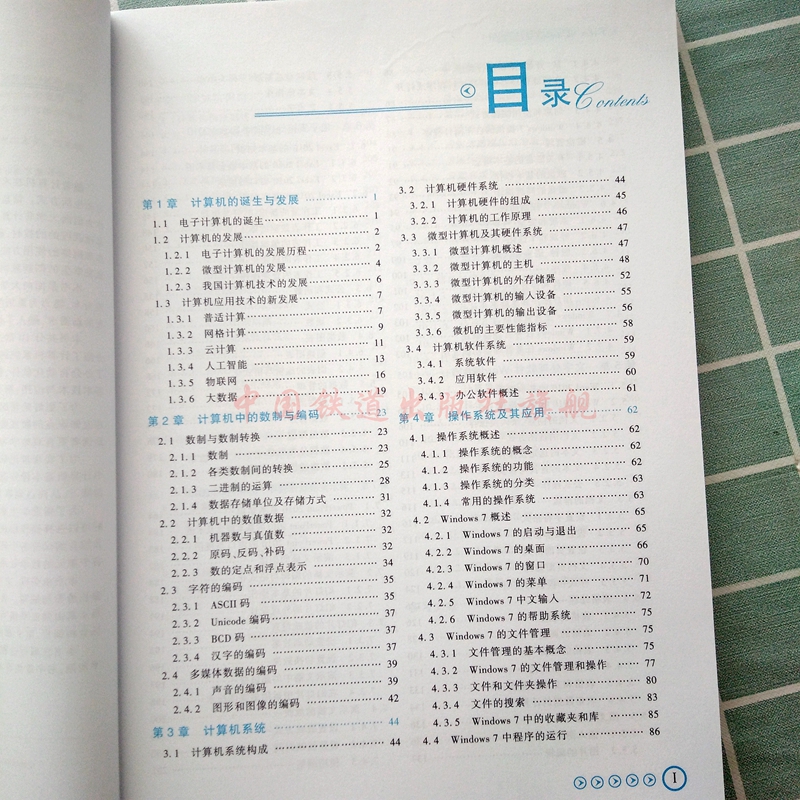 目录Contents
第1章 计算机的诞生与发展 1
1.1 电子计算机的诞生 1
1.2 计算机的发展 2
1.2.1 电子计算机的发展历程 2
1.2.2 微型计算机的发展 4
1.2.3 我国计算机技术的发展 6
1.3 计算机应用技术的新发展 7
1.3.1 普适计算 7
1.3.2 网格计算 9
1.3.3 云计算 11
1.3.4 人工智能 13
1.3.5 物联网 16
1.3.6 大数据 19
第2章 计算机中的数制与编码 23
2.1 数制与数制转换 23
2.1.1 数制 23
2.1.2 各类数制间的转换 25
2.1.3 二进制的运算 28
2.1.4 数据存储单位及存储方式 31
2.2 计算机中的数值数据 32
2.2.1 机器数与真值数 32
2.2.2 原码、反码、补码 32
2.2.3 数的定点和浮点表示 34
2.3 字符的编码 35
2.3.1 ASCII码 35
2.3.2 Unicode编码 37
2.3.3 BCD码 37
2.3.4 汉字的编码 37
2.4 多媒体数据的编码 39
2.4.1 声音的编码 39
2.4.2 图形和图像的编码 42
第3章 计算机系统 44
3.1 计算机系统构成 44
3.2 计算机硬件系统 44
3.2.1 计算机硬件的组成 45
3.2.2 计算机的工作原理 46
3.3 微型计算机及其硬件系统 47
3.3.1 微型计算机概述 47
3.3.2 微型计算机的主机 48
3.3.3 微型计算机的外存储器 52
3.3.4 微型计算机的输入设备 55
3.3.5 微型计算机的输出设备 56
3.3.6 微机的主要性能指标 58
3.4 计算机软件系统 59
3.4.1 系统软件 59
3.4.2 应用软件 60
3.4.3 办公软件概述 61
第4章 操作系统及其应用 62
4.1 操作系统概述 62
4.1.1 操作系统的概念 62
4.1.2 操作系统的功能 62
4.1.3 操作系统的分类 63
4.1.4 常用的操作系统 63
4.2 Windows 7 概述 65
4.2.1 Windows 7 的启动与退出 65
4.2.2 Windows 7 的桌面 66
4.2.3 Windows 7 的窗口 70
4.2.4 Windows 7 的菜单 71
4.2.5 Windows 7 中文输入 72
4.2.6 Windows 7 的帮助系统 75
4.3 Windows 7 的文件管理 75
4.3.1 文件管理的基本概念 75
4.3.2 Windows 7 的文件管理和操作 77
4.3.3 文件和文件夹操作 80
4.3.4 文件的搜索 83
4.3.5 Windows 7 中的收藏夹和库 85
4.4 Windows 7 中程序的运行 86
中国铁道出版社旗舰
I